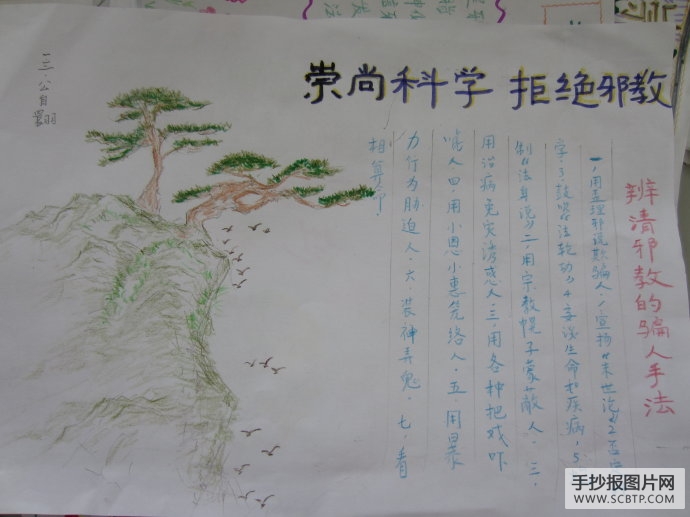 崇尚科学 拒绝邪教
三.公自翾
辨清邪教的骗人手法
一,用歪理邪说欺骗人.1宣扬《末世论》2否定
字,3鼓吹《法轮功》4妄谈生命和疾病,5
制《法身说》二,用宗教幌子蒙蔽人.三.
用治病免灾诱惑人.三.用各种把戏吓
唬人四.用小恩小惠笼络人.五.用暴
力行为胁迫人.六.装神弄鬼.七.看
相算命.
手抄报图片网
WWW.SCBTP.COM